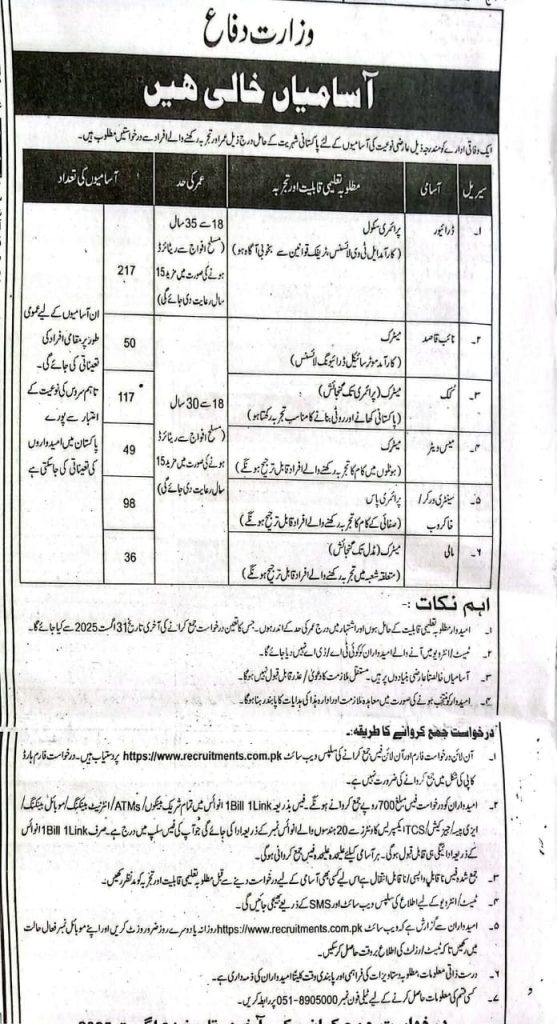 وزارت دفاع
آسامیاں خالی ھیں
ایک وفاقی ادارے کو مندرجہ ذیل عارضی نوعیت کی آسامیوں کے لئے پاکستانی شہریت کے حامل درج ذیل عمر اور تجربہ رکھنے والے افراد سے درخواستیں مطلوب ہیں۔
سیریل
آسامی
مطلوبہ تعلیمی قابلیت اور تجربہ
عمر کی حد
آسامیوں کی تعداد
۱۔
ڈرائیور
پرائمری سکول
(کارآمد ایل ٹی وی لائسنس، ٹریفک قوانین سے بخوبی آگاہ ہو)
18 سے 35 سال
(مسلح افواج سے ریٹائرڈ
ہونے کی صورت میں مزید 15
سال رعایت دی جائے گی)
217
۲۔
نائب قاصد
میٹرک
(کارآمد موٹر سائیکل ڈرائیونگ لائسنس)
18 سے 30 سال
(مسلح افواج سے ریٹائرڈ
ہونے کی صورت میں مزید 15
سال رعایت دی جائے گی)
50
۳۔
کک
میٹرک (پرائمری تک گنجائش)
(پاکستانی کھانے اور روٹی بنانے کا مناسب تجربہ رکھتا ہو)
117
۴۔
میس ویٹر
میٹرک
(ہوٹلوں میں کام کا تجربہ رکھنے والے افراد قابل ترجیح ہونگے)
49
۵۔
سینٹری ورکر/
خاکروب
پرائمری پاس
(صفائی کے کام کا تجربہ رکھنے والے افراد قابل ترجیح ہونگے)
98
۶۔
مالی
میٹرک (مڈل تک گنجائش)
(متعلقہ شعبہ میں تجربہ رکھنے والے افراد قابل ترجیح ہونگے)
36
ان آسامیوں کے لیے عمومی
طور پر مقامی افراد کی
تعیناتی کی جائے گی۔
تاہم سروس کی نوعیت کے
اعتبار سے پورے
پاکستان میں امیدواروں
کی تعیناتی کی جاسکتی ہے
اہم نکات :-
۱۔ امیدوار مطلوبہ تعلیمی قابلیت کے حامل ہوں اور اشتہار میں درج عمر کی حد کے اندر ہوں۔ جس کا تعین درخواست جمع کرانے کی آخری تاریخ 31 اگست 2025 سے کیا جائے گا۔
۲۔ ٹیسٹ/انٹرویو میں آنے والے امیدواران کو کوئی ٹی اے/ڈی اے نہیں دیا جائے گا۔
۳۔ آسامیاں خالصتاً عارضی بنیادوں پر ہیں۔ مستقل ملازمت کا دعویٰ/عذر قابل قبول نہیں ہوگا۔
۴۔ امیدوار کو منتخب ہونے کی صورت میں معاہدہ ملازمت اور ادارہ ہذا کی ہدایات کا پابند رہنا ہوگا۔
درخواست جمع کروانے کا طریقہ:۔
۱۔ آن لائن درخواست فارم اور آن لائن فیس جمع کرانے کی سلپس ویب سائٹ https://www.recruitments.com.pk پر دستیاب ہیں۔ درخواست فارم ہارڈ
کاپی کی شکل میں جمع کروانے کی ضرورت نہیں ہے۔
۲۔ امیدواران کو درخواست فیس مبلغ 700 روپے جمع کروانے ہونگے۔ فیس بذریعہ 1Bill 1Link انوائس میں تمام شریک بینکوں/ATMs/انٹرنیٹ بینکنگ/موبائل بینکنگ/
ایزی پیسہ/جیز کیش/TCS ایکسپریس کاؤنٹرز سے 20 ہندسوں والے انوائس نمبر کے ذریعے ادا کی جائے گی جو آپ کی فیس سلپ میں درج ہے۔ صرف 1Bill 1Link انوائس
کے ذریعہ ادائیگی ہی قابل قبول ہوگی۔ ہر آسامی کیلئے علیحدہ علیحدہ فیس جمع کروانی ہوگی۔
۳۔ جمع شدہ فیس ناقابل واپسی/ناقابل انتقال ہے اس لیے کسی بھی آسامی کے لیے درخواست دینے سے قبل مطلوبہ تعلیمی قابلیت اور تجربہ کو مدنظر رکھیں۔
۴۔ ٹیسٹ/انٹرویو کے لیے اطلاع کی سلپس ویب سائٹ اور SMS کے ذریعے بھیجی جائیں گی۔
۵۔ امیدواران سے گزارش ہے کہ ویب سائٹ https://www.recruitments.com.pk روزانہ یا دوسرے روز ضرور وزٹ کریں اور اپنے موبائل نمبر فعال حالت
میں رکھیں تاکہ ٹیسٹ/رزلٹ کی اطلاع بروقت حاصل کر سکیں۔
۶۔ درست ذاتی معلومات، مطلوبہ دستاویزات کی فراہمی اور پابندی وقت کلیتاً امیدواران کی ذمہ داری ہے۔
۷۔ کسی قسم کی معلومات حاصل کرنے کے لیے ٹیلی فون نمبر 051-8905000 پر رابطہ کریں۔